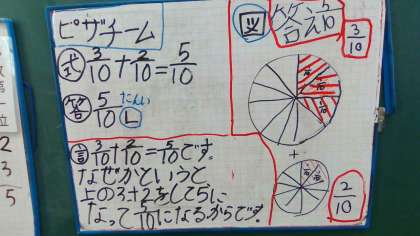 ピザチーム
式 3/10+2/10=5/10
答 5/10 たんい L
言 3/10+2/10=5/10です。
なぜかというと
上の3+2をして5に
なって5/10になるからです。
図
3/10
+
2/10
数
第
一
位
2
3
5